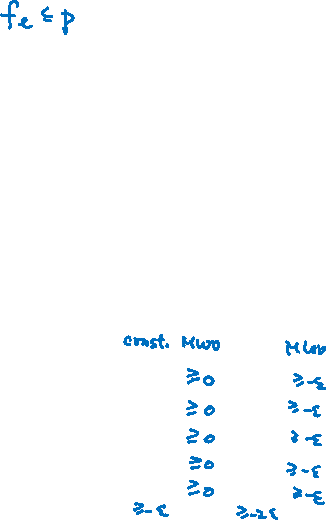 fe ≤ p
const. MWU
≥0 ≥-ε
≥0 ≥-ε
≥0 ≥-ε
≥0 ≥-ε
≥0 ≥-ε
≥-ε ≥-2ε